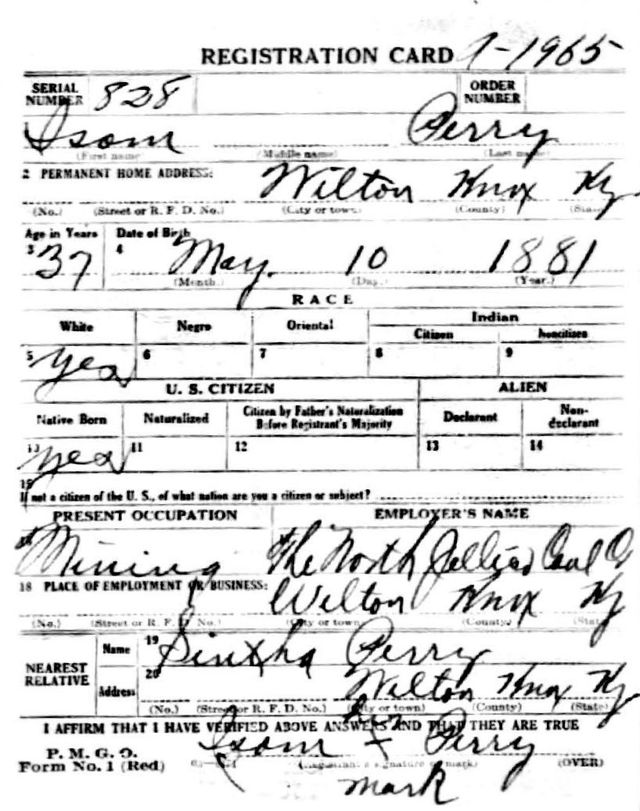 REGISTRATION CARD 9-1965
SERIAL NUMBER 828 ORDER NUMBER
Isom Perry
(First name (Middle name) (Last name)
2 PERMANENT HOME ADDRESS:
Wilton Knox Ky
(No.) (Street or R. F. D. No.) (City or town) (County) (State)
Age in Years Date of Birth
3 37 4 May. 10 1881
(Month.) (Day.) (Year.)
RACE
White Negro Oriental Indian
Citizen Noncitizen
5 yes 6 7 8 9
U. S. CITIZEN ALIEN
Native Born Naturalized Citizen by Father's Naturalization Before Registrant's Majority Declarant Non-declarant
10 yes 11 12 13 14
15
If not a citizen of the U. S., of what nation are you a citizen or subject?
PRESENT OCCUPATION EMPLOYER'S NAME
Mining The North Jellico Coal Co
18 PLACE OF EMPLOYMENT OR BUSINESS:
Wilton Knox Ky
(No.) (Street or R. F. D. No.) (City or town) (County) (State)
NEAREST RELATIVE Name 19 Sintha Perry
Address 20 Wilton Knox Ky
(No.) (Street or R. F. D. No.) (City or town) (County) (State)
I AFFIRM THAT I HAVE VERIFIED ABOVE ANSWERS AND THAT THEY ARE TRUE
his
P. M. G. O.
Form No. 1 (Red) Isom x Perry
(Registrant's signature or mark) (OVER)
mark